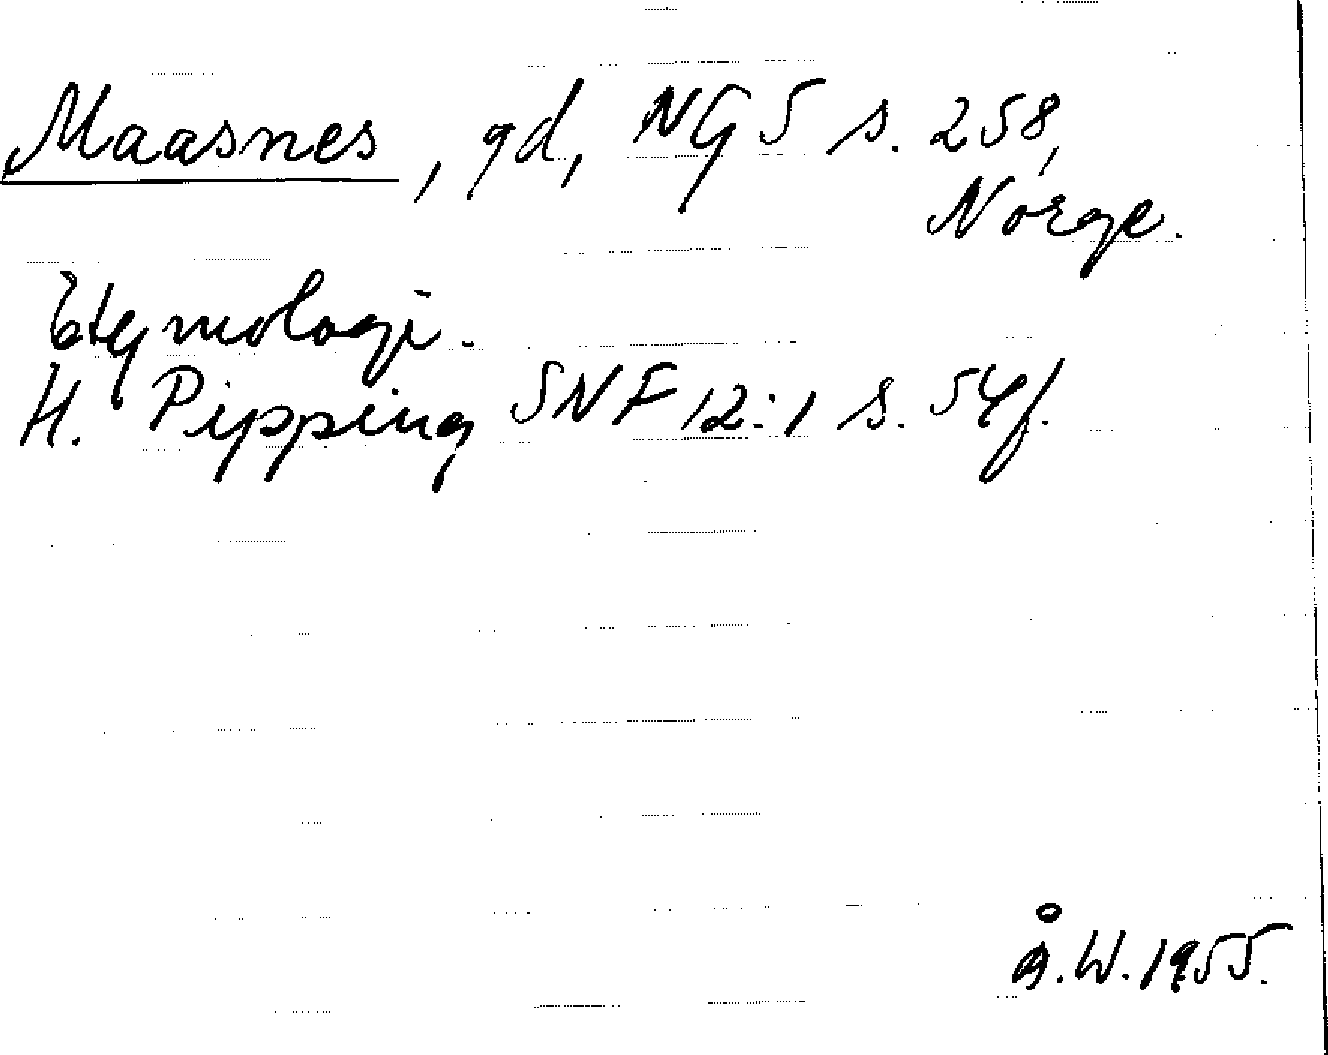 Maasnes, gd, NG 5 s. 258,
Norge.
Etymologi.
H. Pipping SNF 12:1 s. 54f.
Å.W. 1955.